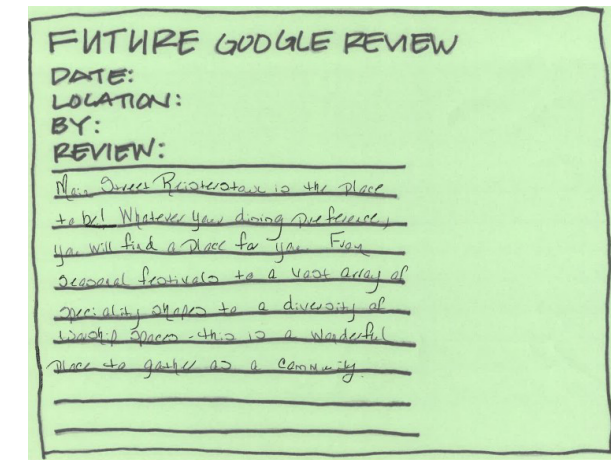 FUTURE GOOGLE REVIEW
DATE:
LOCATION:
BY:
REVIEW:
Main Street Reisterstown is the place
to be! Whatever your dining preference,
you will find a place for you. From
seasonal festivals to a vast array of
speciality shapes to a diversity of
worship spaces - this is a wonderful
place to gather as a community.